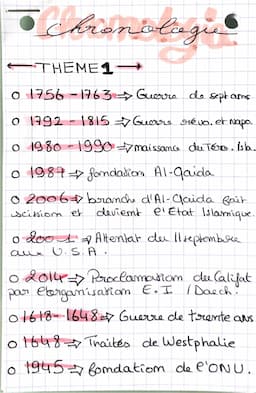 Chronologie
THEME 1
1756 - 1763 ⇒ Guerre de sept ans
1792 - 1815 ⇒ Guerres révo. et Napo.
1980 - 1990 ⇒ naissance du Terro. Isla.
1987 ⇒ fondation Al-Qaida
2006 ⇒ branche d'Al-Qaida fait
scission et devient l'Etat Islamique.
2001 ⇒ Attentat du 11 septembre
aux U.S.A.
2014 ⇒ Proclamation du Califat
par l'organisation E.I / Daech.
1618 - 1648 ⇒ Guerre de trente ans
1648 ⇒ Traités de Westphalie
1945 ⇒ fondation de l'ONU.